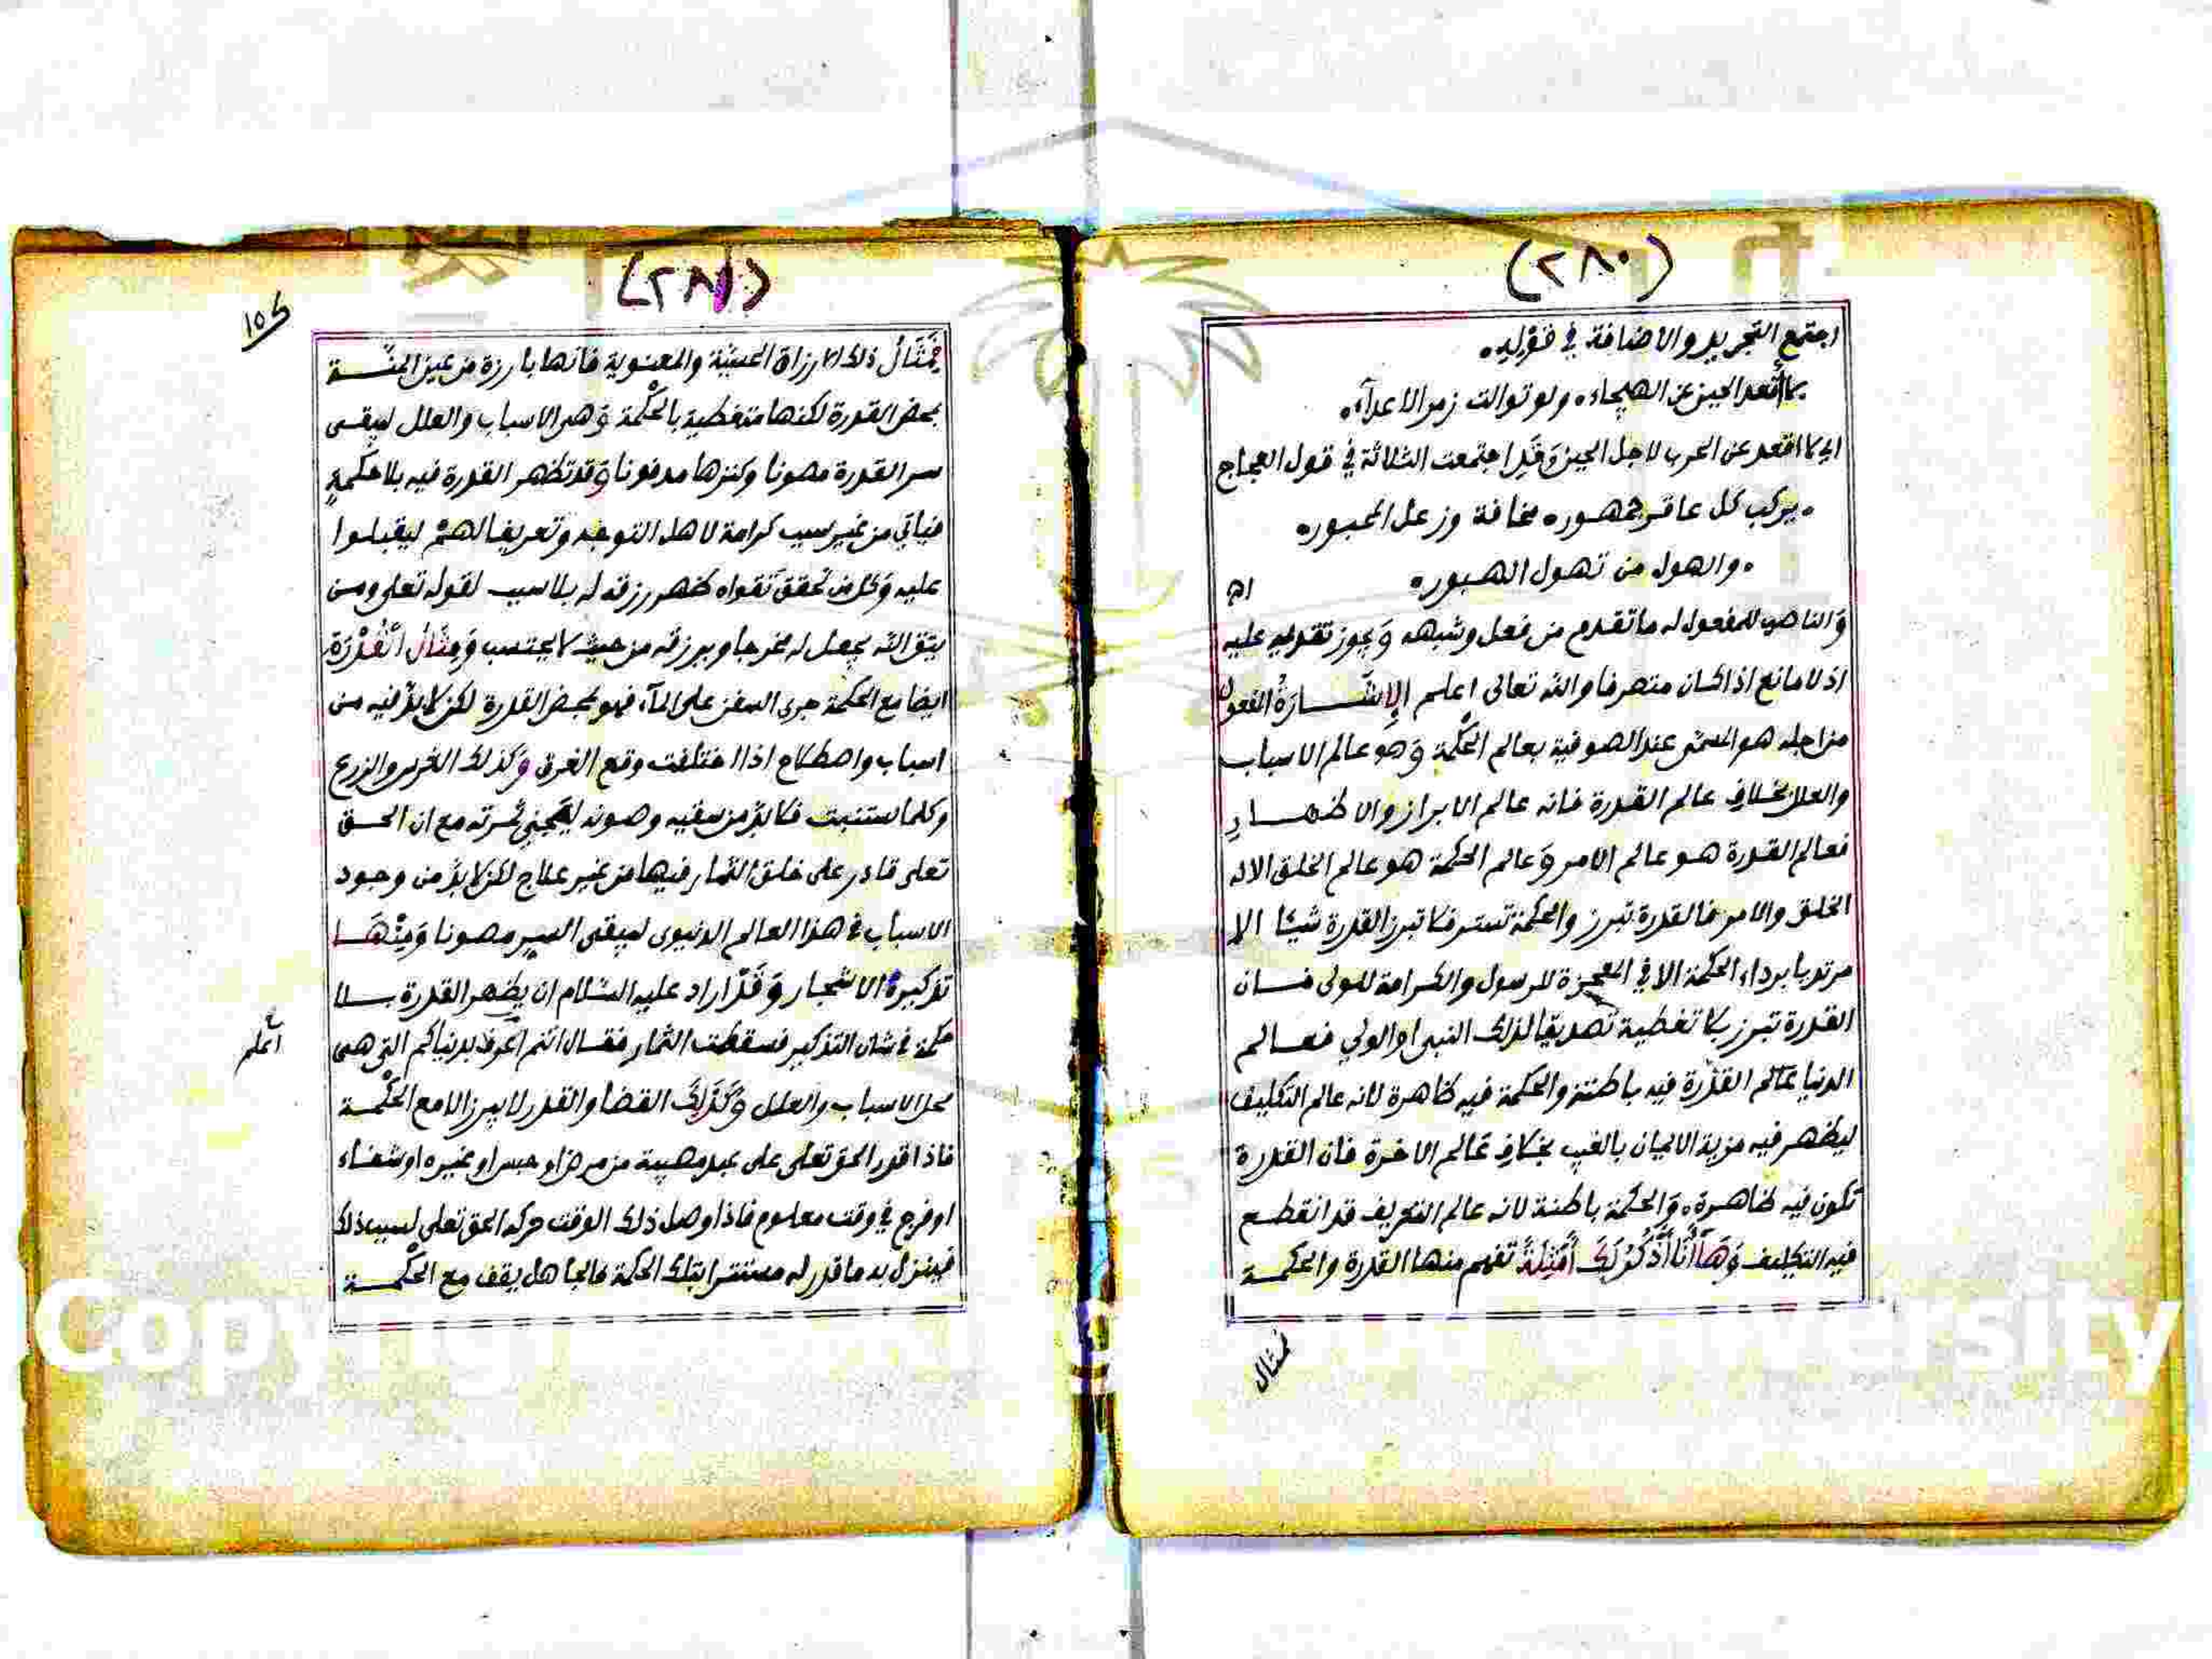 (٢٨٠)
اجتمع التجريد والاضافة في قوله
لا أقعد الجبن عن الهيجاء ولو توالت زمر الاعدآء
اي لا اقعد عن الحرب لاجل الجبن وَقَد اجتمعت الثلاثة في قول العجاج
يركب كل عاقر جمهور مخافة وزعل المحبور
والهول من تهول الهبور
اﻫ
وَالناصب للمفعول له ما تقدم من فعل وشبهه وَيجوز تقديمه عليه
اذ لا مانع اذا كان متصرفا والله تعالى اعلم الإشَــارَةُ المفعول
من اجله هو المسمى عند الصوفية بعالم الحكْمة وَهو عالم الاسباب
والعلل بخلاف عالم القدرة فانه عالم الابراز والاظهــار
فعالم القدرة هو عالم الامر وَعالم الحكمة هو عالم الخلق الا له
الخلق والامر فالقدرة تبرز والحكمة تستر فلا تبرز القدرة شيئا الا
مرتديا برداء الحكمة الا في المعجزة للرسول والكرامة للولى فــان
القدرة تبرز بلا تغطية تصديقا لذلك النبى او الولي فعــالم
الدنيا عَالم القدْرة فيه باطنة والحكمة فيه ظاهرة لانه عالم التكليف
ليظهر فيه مزية الايمان بالغيب بخلاف عَالم الاخرة فان القدرة
تكون فيه ظاهرة وَالحكمة باطنة لانه عالم التعريف قد انقطــع
فيه التكليف وَهَا أنَا أذْكُرْ لَكَ أَمْثِلَةً تفهم منها القدرة والحكمــة
فمثال
(٢٨١)
١٥٤
فَمِثَالُ ذلك الارزاق الحسيّة والمعنوية فانها بارزة من عين المنّــة
بمحض القدرة لكنها متغطية بالحكْمة وَهى الاسباب والعلل ليبقــى
سر القدرة مصونا وكنزها مدفونا وَقد تظهر القدرة فيه بلا حكمةٍ
فياتي من غير سبب كرامة لاهل التوجه وتعريفا لهمْ ليقبلــوا
عليه وَكل من تحقق تَقواه ظهر رزقه له بلا سبب لقوله تعلى ومــن
يتق الله يجعل له مخرجا ويرزقه من حيث لا يحتسب وَمِثَالُ القُدْرَة
ايضا مع الحكمة جرى السفن على المآء فهو بمحض القدرة لكن لا بدّ فيه من
اسباب واصطلاح اذا اختلفت وقع الغرق وَكذلك الغرس والزرع
وكلما يستنبت فلا بدّ من سقيه وصونه ليَجني ثمرته مع ان الحــق
تعلى قادر على خلق الثمار فيها من غير علاج لكن لا بدّ من وجود
الاسباب فى هذا العالم الدنيوى ليبقى السر مصونا وَمِنْهَــا
تذكيرُ الاشجار وَقَدْ اراد عليه السّلام ان يظهر القدرة بــلا
حكمة فى شان التذكير فسقطت الثمار فقــال انتم اعرف بدنياكم التى هى
اعلم
محل الاسباب والعلل وَكَذَلِكَ القضا والقدر لا يبرز الا مع الحكْمــة
فاذا قدر الحق تعلى على عبد مصيبة من مرض او حبس او غيره او شفــاء
او فرج في وقت معلوم فاذا وصل ذلك الوقت حركه الحق تعلى لسبب ذلك
فينزل به ما قدر له مستترا بتلك الحكمة فالجاهل يقف مع الحكْمــة